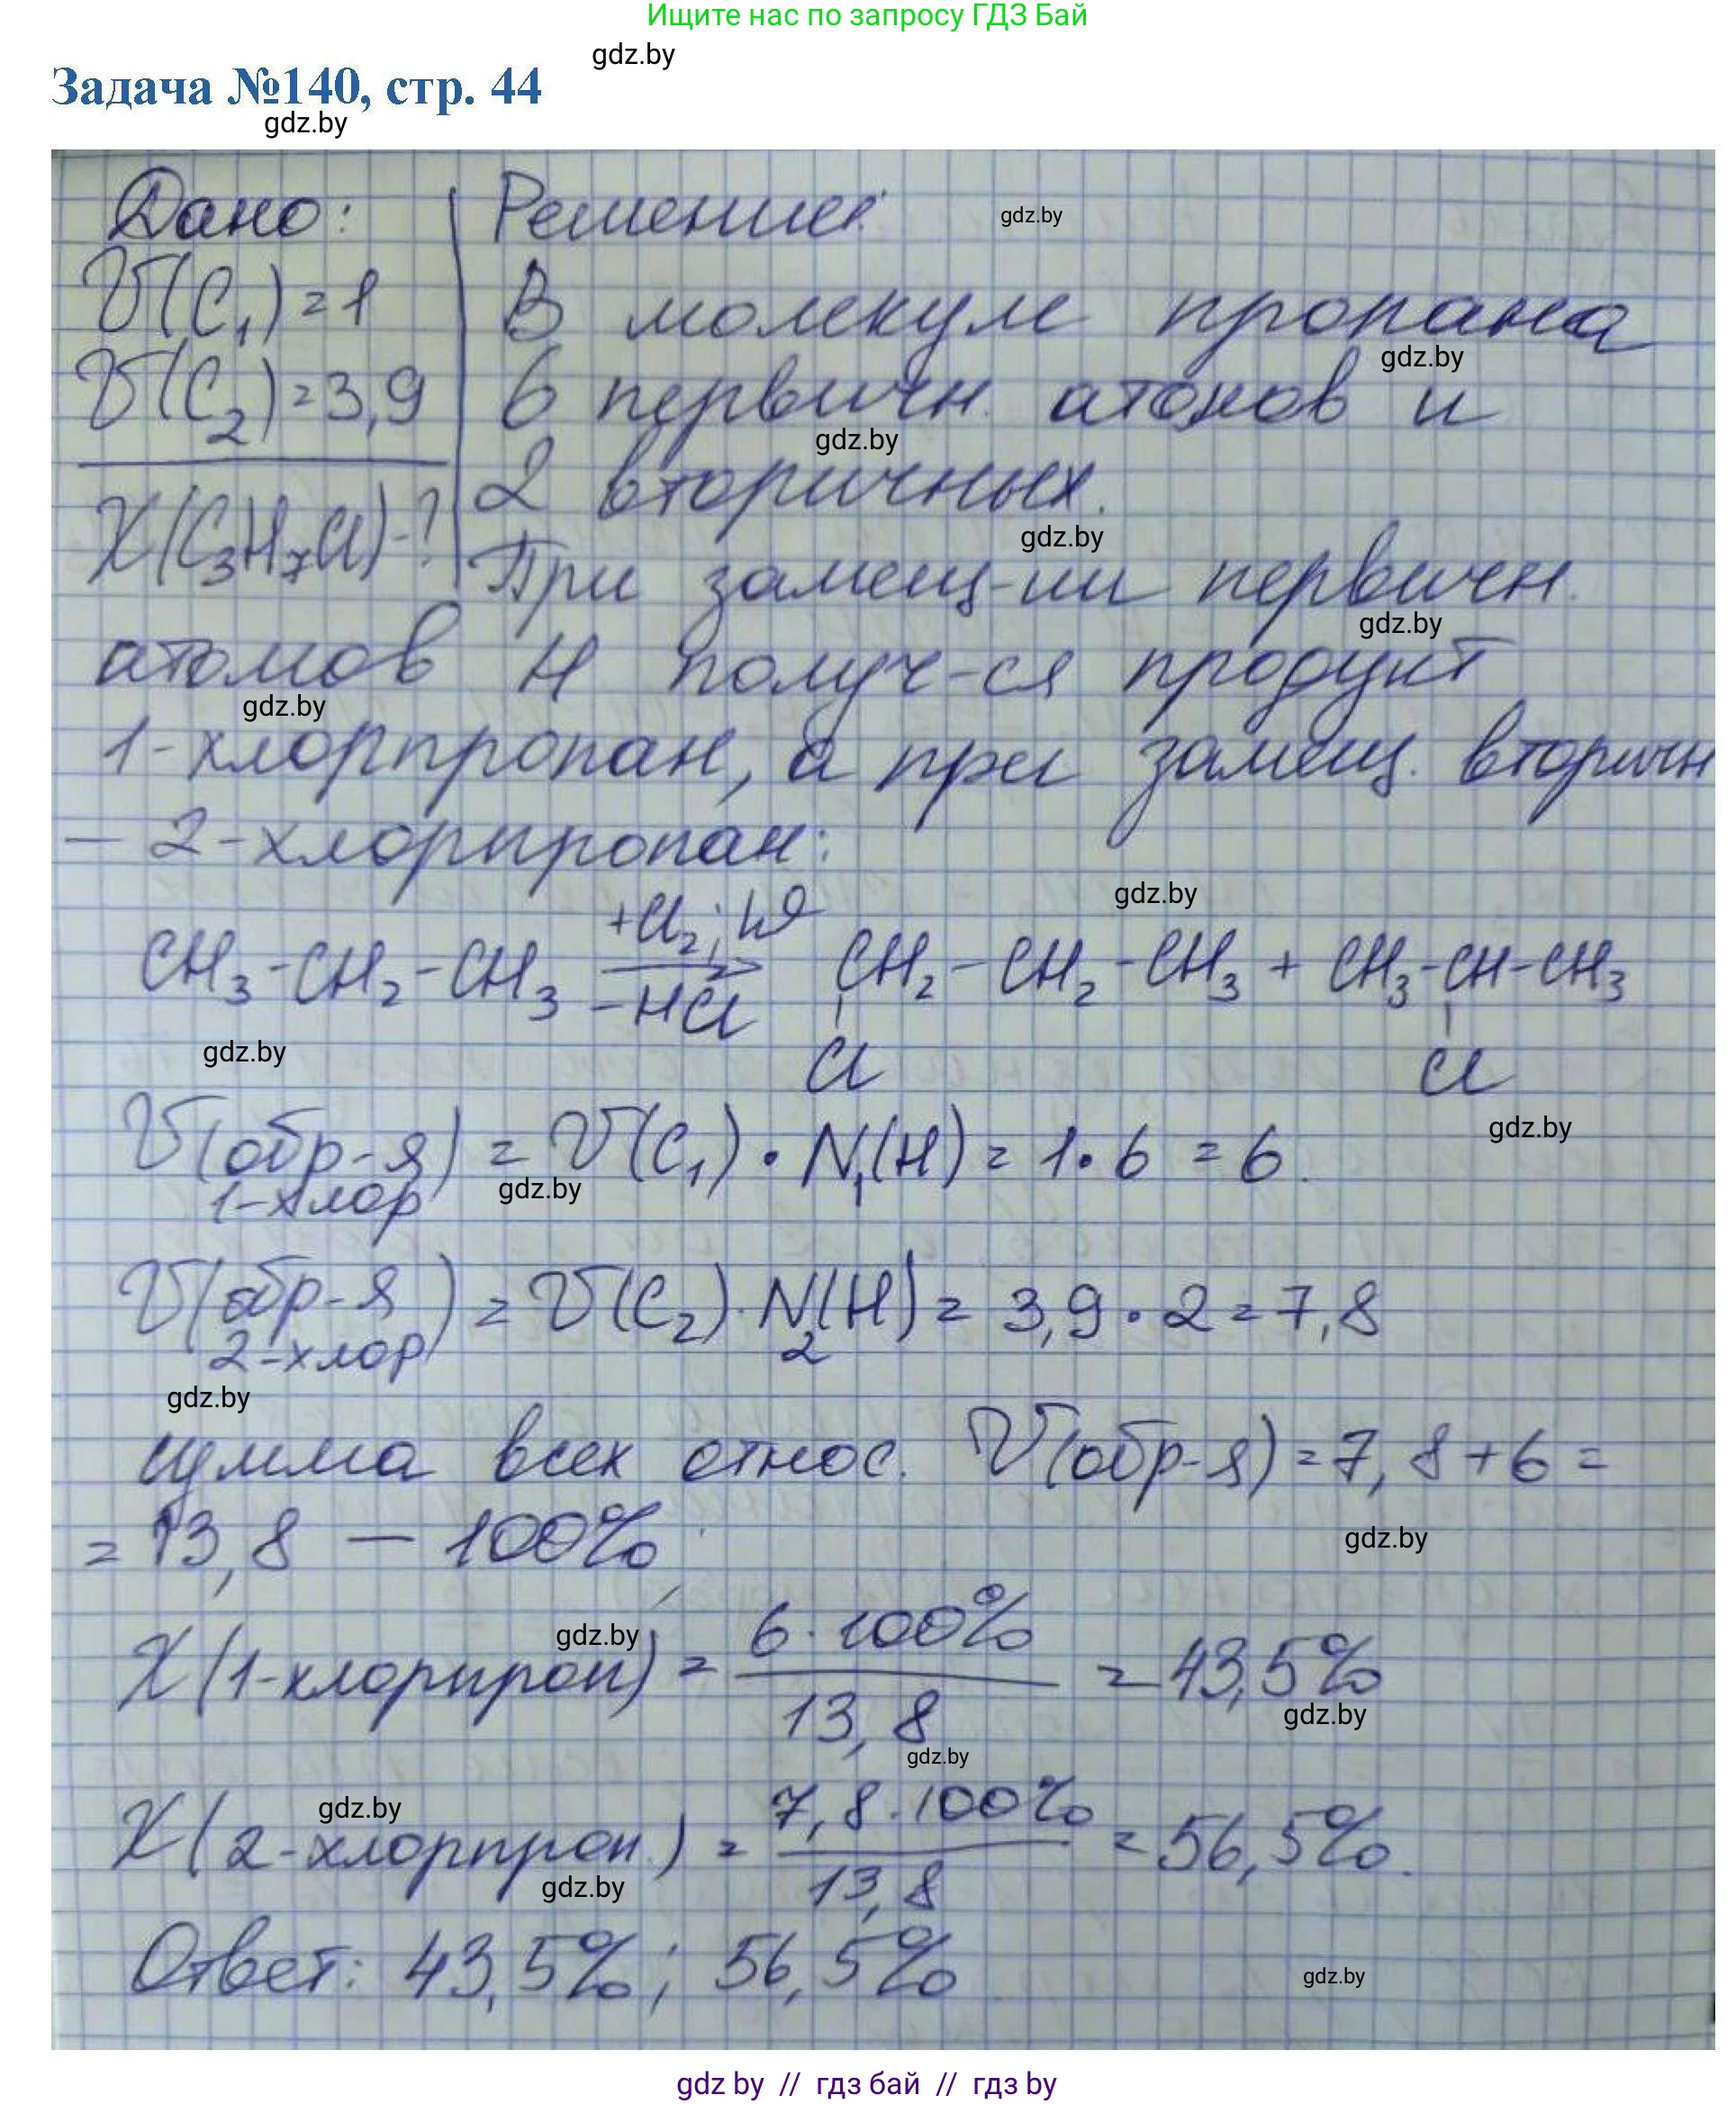 Ищите нас по запросу ГДЗ Бай
gdz.by
Задача №140, стр. 44
gdz.by
Дано:
Решение:
gdz.by
V(C₁)=1
В молекуле пропана
gdz.by
V(C₂)=3,9
6 первичн. атомов и
gdz.by
2 вторичных.
X(C₃H₇Cl)-?
gdz.by
При замещ-ии первичн.
gdz.by
атомов H получ-ся продукт
gdz.by
1-хлорпропан, а при замещ. вторичн
– 2-хлорпропан:
gdz.by
CH₃-CH₂-CH₃ +Cl₂; hϑ → -HCl CH₂-CH₂-CH₃ + CH₃-CH-CH₃
gdz.by
Cl Cl
gdz.by
V(обр-я) = V(C₁)·N₁(H) = 1·6 = 6.
1-хлор
gdz.by
V(обр-я) = V(C₂)·N₂(H) = 3,9·2=7,8
2-хлор
gdz.by
сумма всех относ. V(обр-я)=7,8+6=
= 13,8 – 100%
gdz.by
gdz.by
X(1-хлорпроп) = 6·100% / 13,8 = 43,5%
gdz.by
gdz.by
gdz.by
X(2-хлорпроп.) = 7,8·100% / 13,8 = 56,5%.
gdz.by
Ответ: 43,5%; 56,5%
gdz.by
gdz by // гдз бай // гдз by